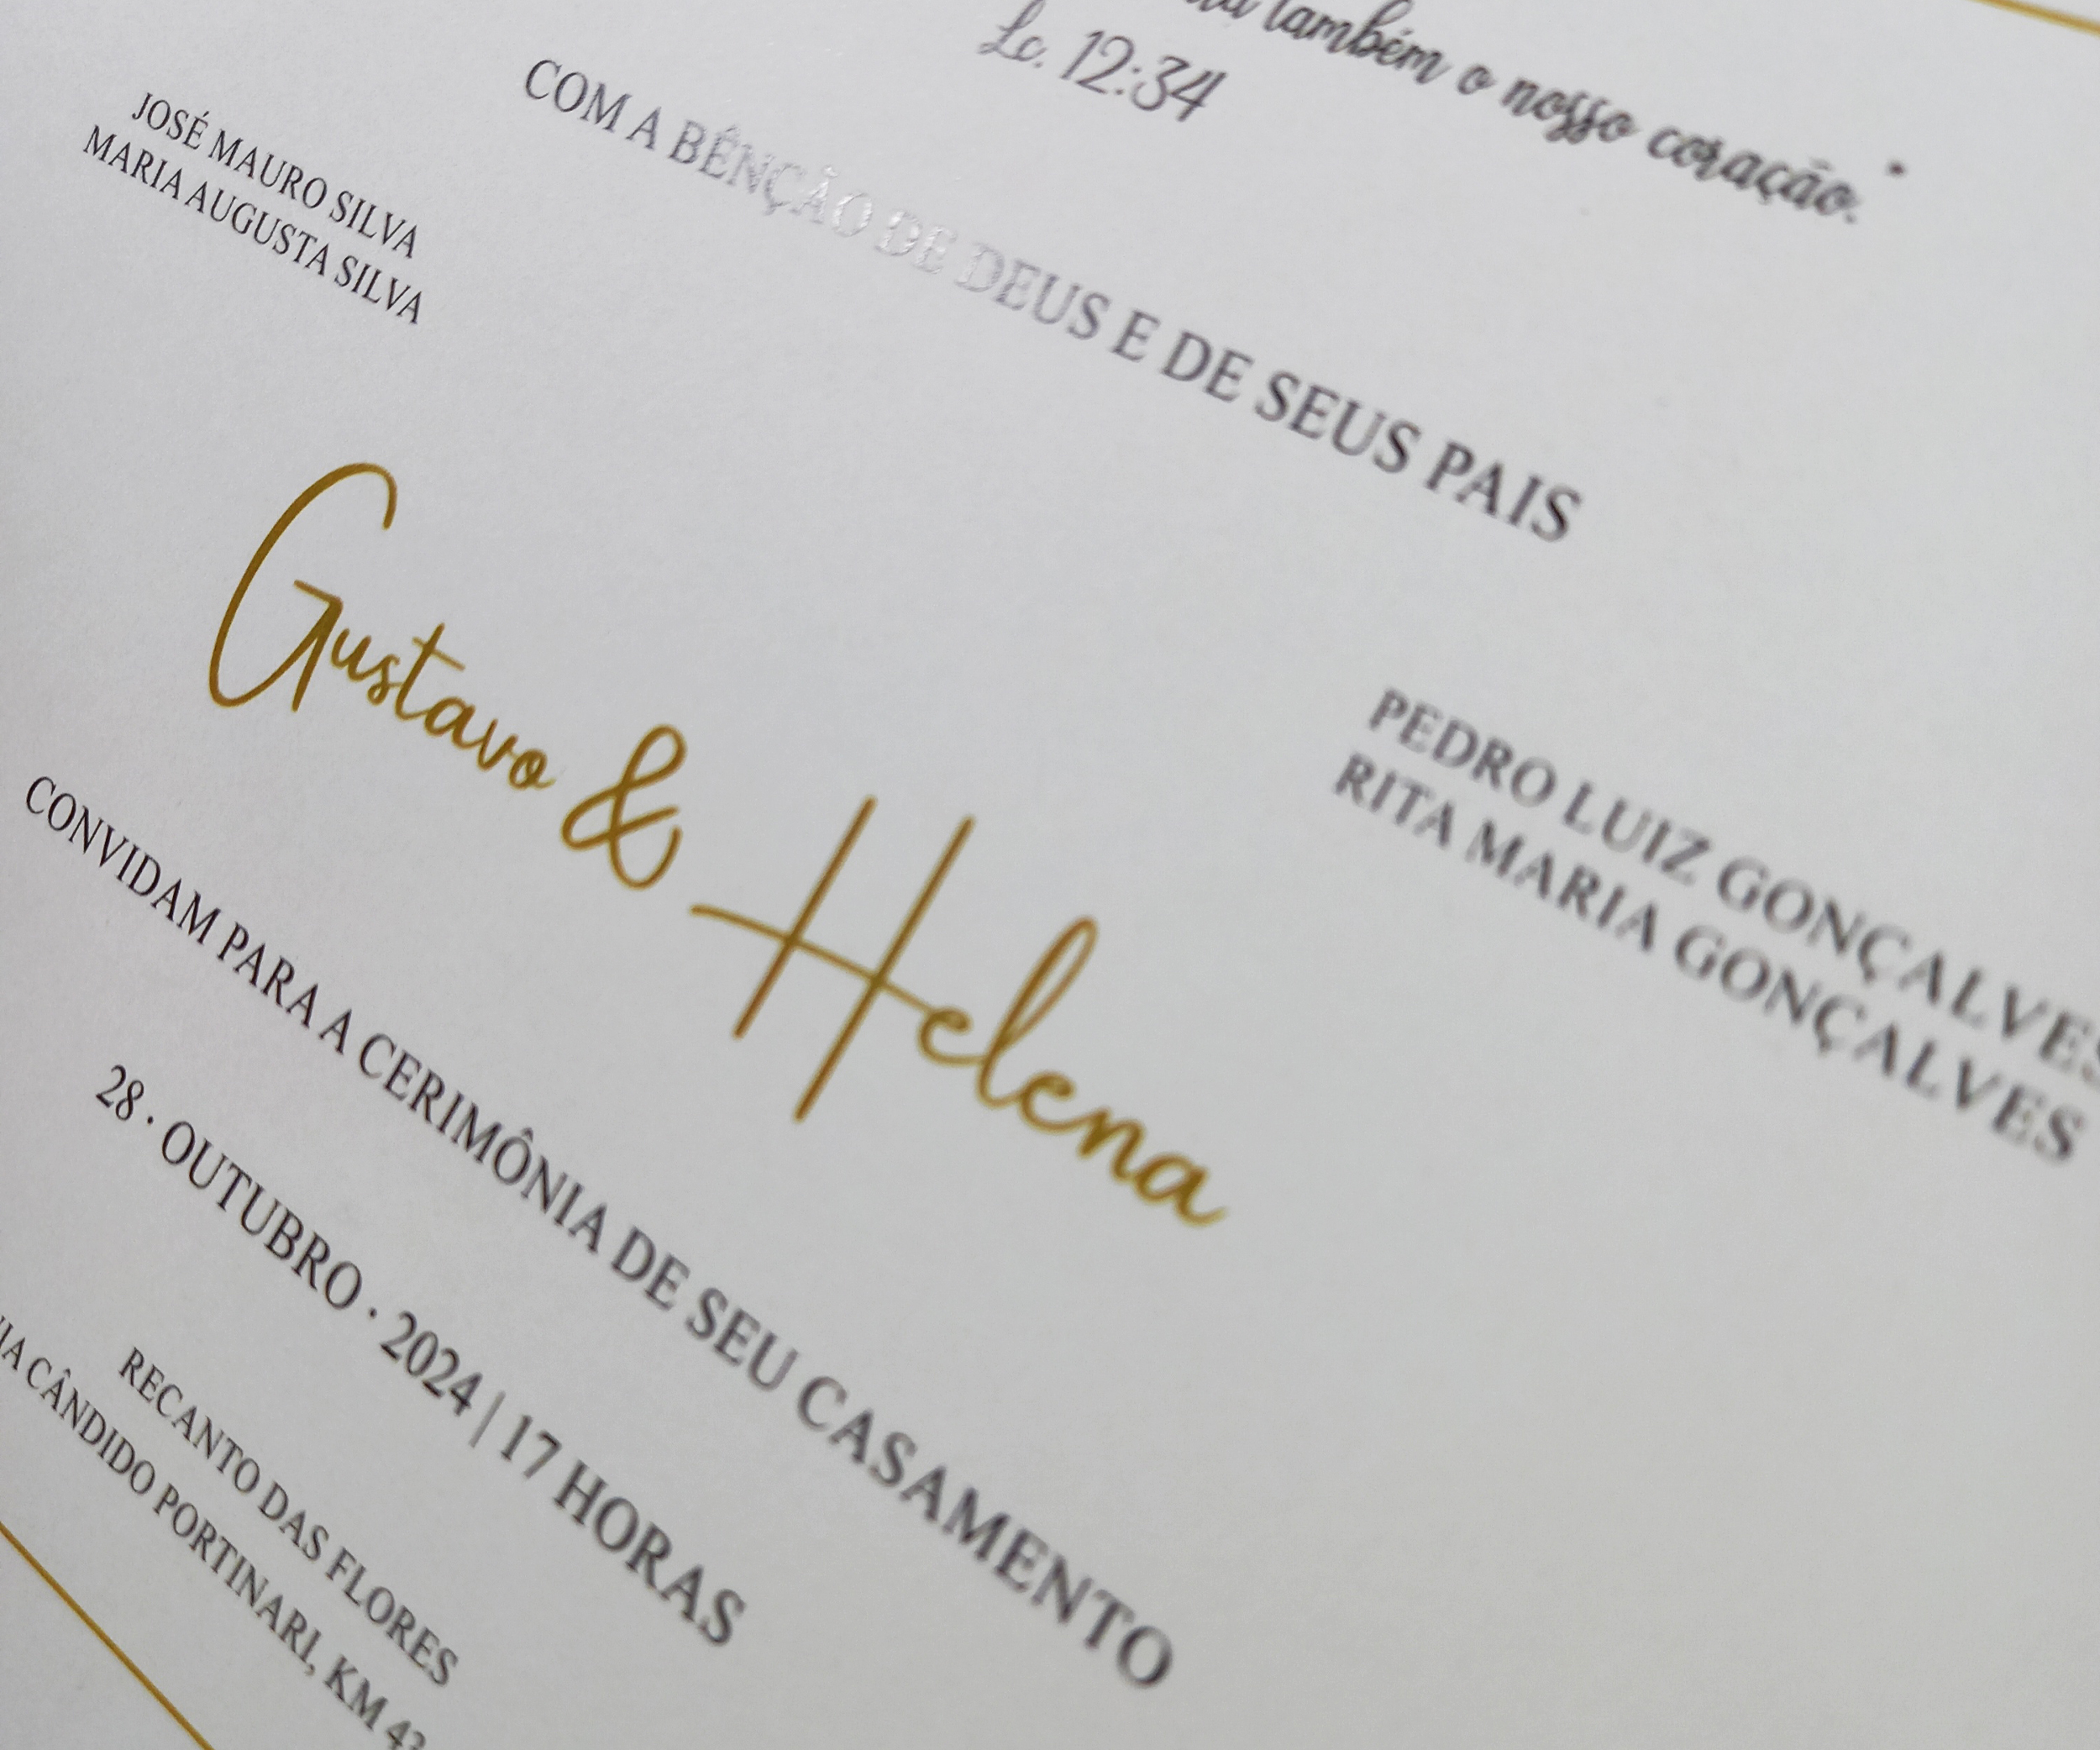 também o nosso coração."
Lc. 12:34
COM A BÊNÇÃO DE DEUS E DE SEUS PAIS
JOSÉ MAURO SILVA
MARIA AUGUSTA SILVA
PEDRO LUIZ GONÇALVES
RITA MARIA GONÇALVES
Gustavo & Helena
CONVIDAM PARA A CERIMÔNIA DE SEU CASAMENTO
28 · OUTUBRO · 2024 | 17 HORAS
RECANTO DAS FLORES
CÂNDIDO PORTINARI, KM